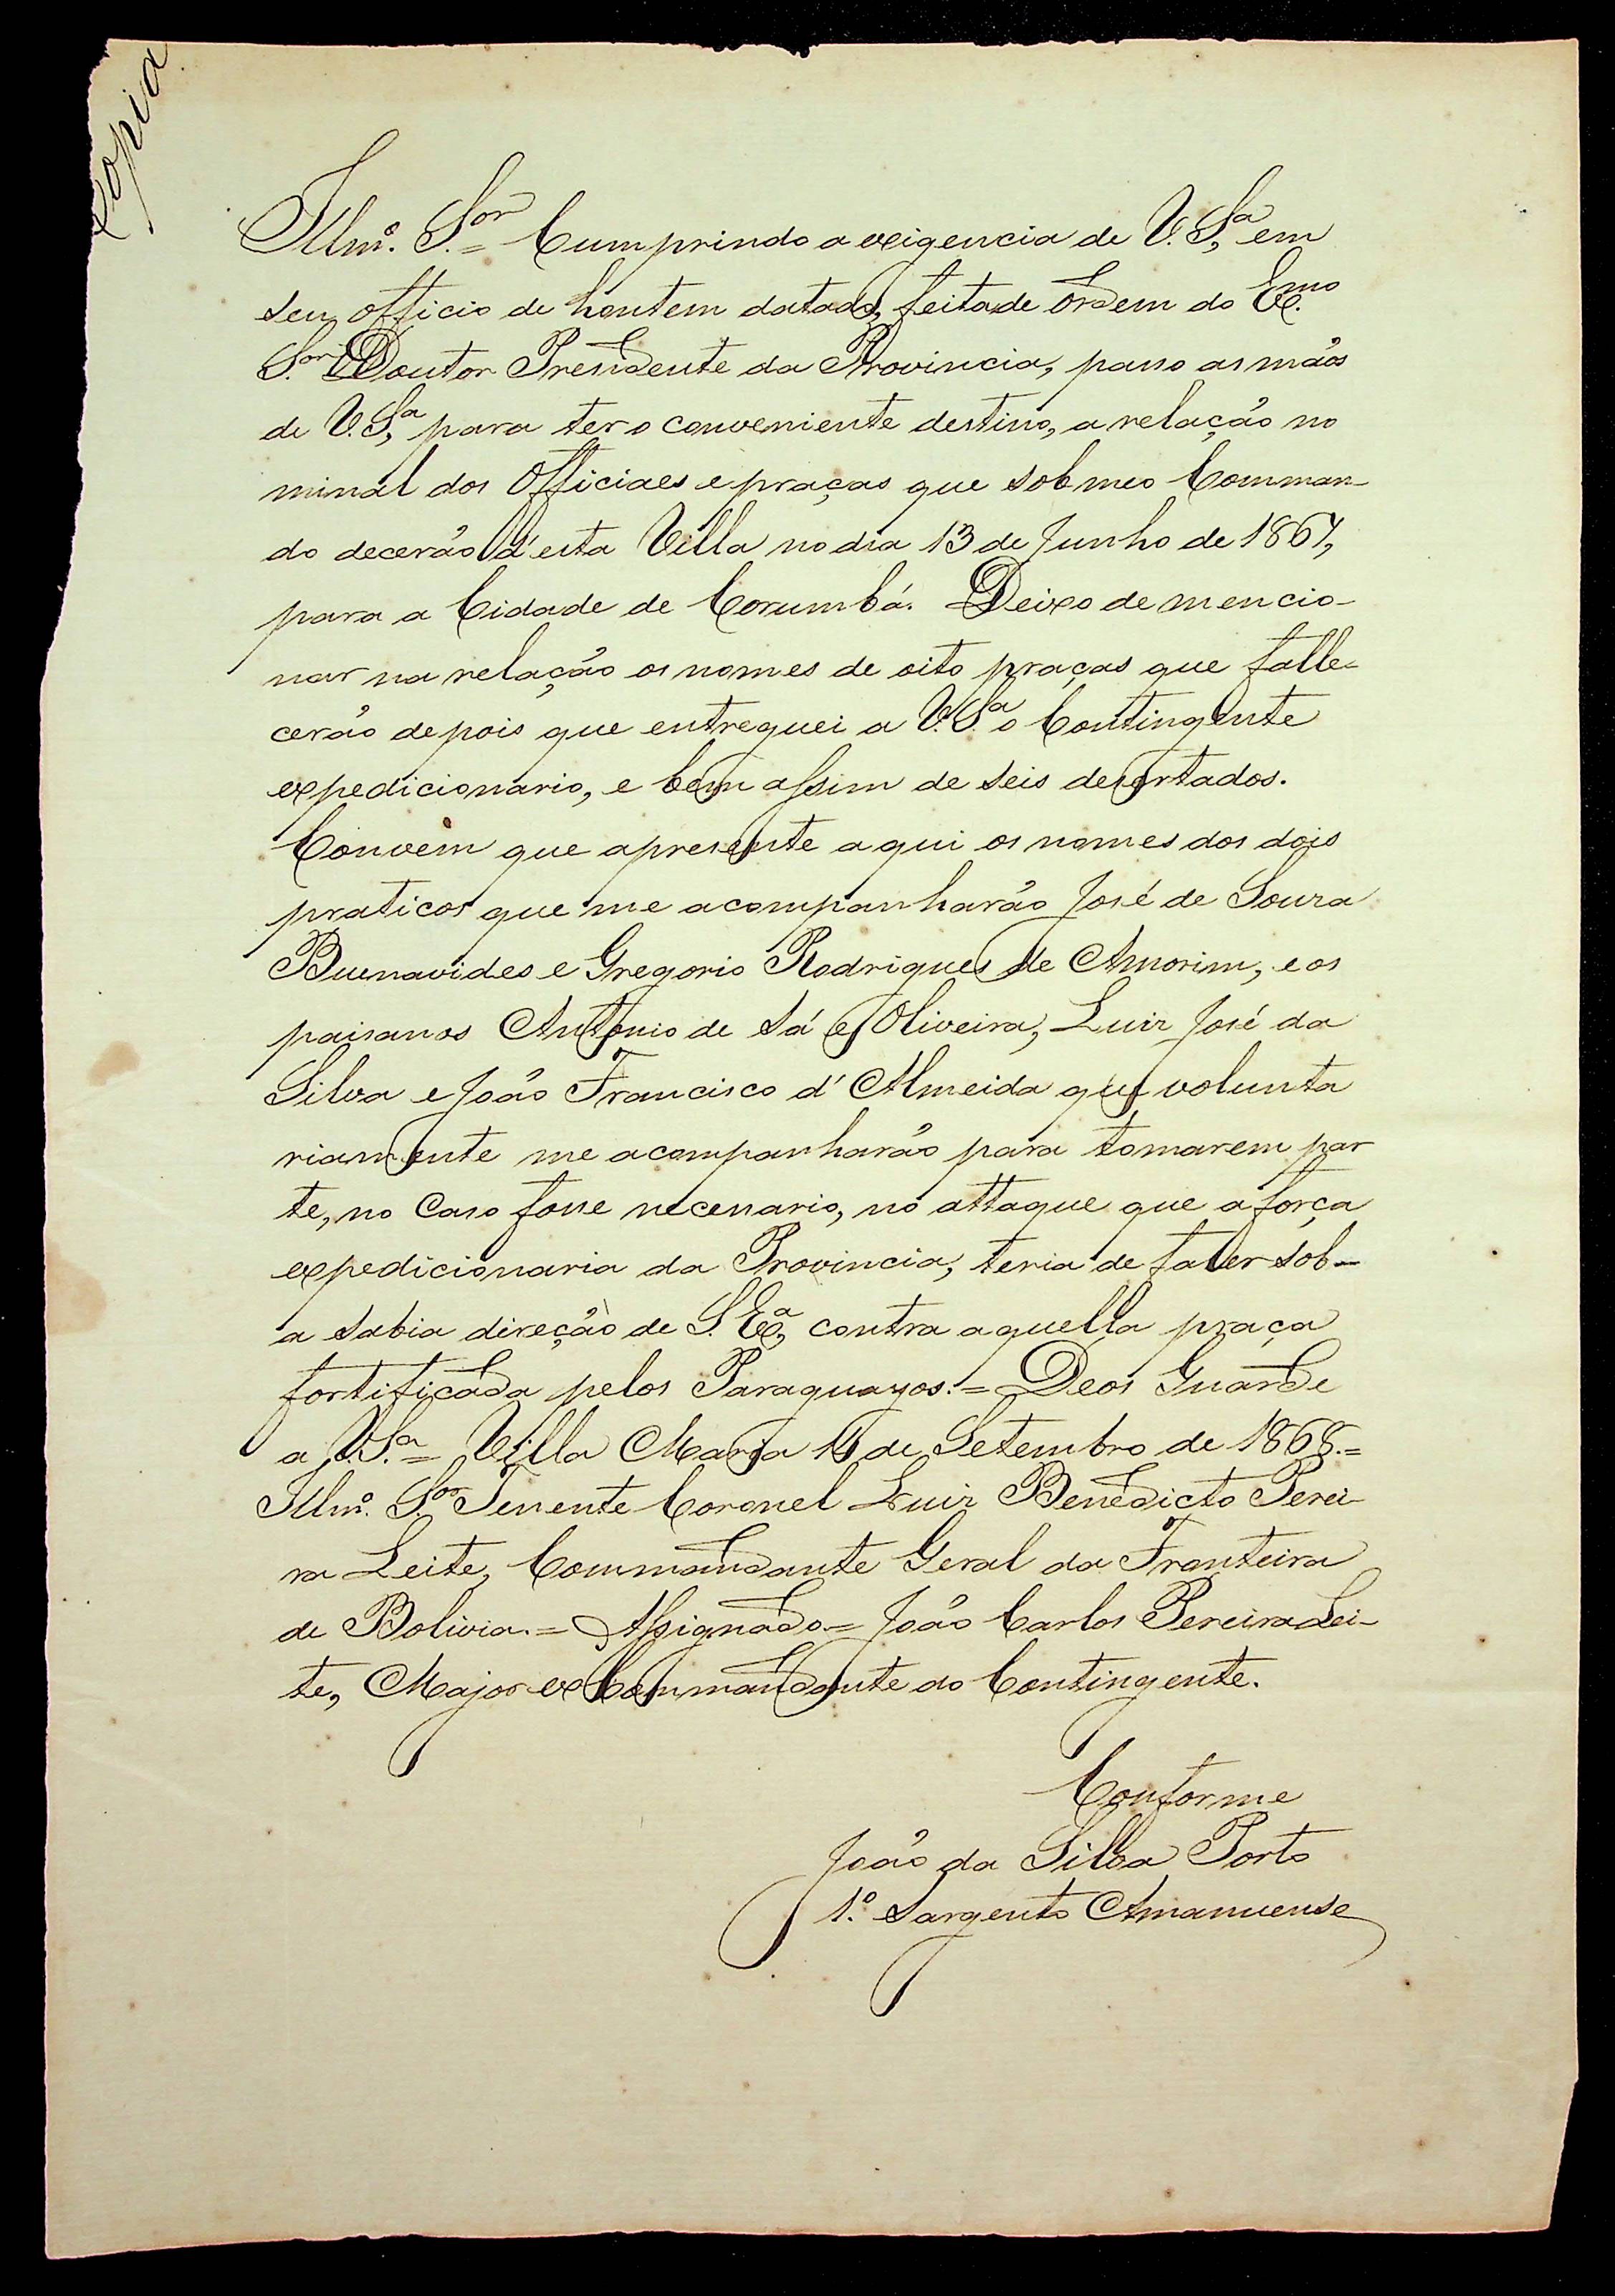 Copia
Illmº. S.ºr = Cumprindo a exigencia de V. S.ª, em
seu officio de hontem datado, feita de ordem do Ex.mo
S.or Doutor Presidente da Provincia, passo as mãos
de V. S.ª, para ter o conveniente destino, a relação no
minal dos Officiaes e praças que sob meo Comman-
do decerão d'esta Villa no dia 13 de Junho de 1867,
para a Cidade de Corumbá. Deixo de mencio-
nar na relação os nomes de oito praças que falle-
cerão depois que entreguei a V. S.ª o Contingente
expedicionario, e bem assim de seis desertados.
Convém que apresente aqui os nomes dos dois
praticos que me acompanharão José de Souza
Buenavides e Gregorio Rodrigues de Amorim, e os
paisanos Antonio de Sá e Oliveira, Luiz José da
Silva e João Francisco d'Almeida que volunta
riamente me acompanharão para tomarem par
te, no caso fosse necessario, no attaque que a força
expedicionaria da Provincia, teria de fazer sob-
a sabia direção de S. Exª, contra aquella praça
fortificada pelos Paraguayos. = Deos Guarde
a V. S.ª = Villa Maria de Setembro de 1868. =
Illmº. S.or Tenente Coronel Luiz Benedicto Perei-
ra Leite, Commandante Geral da Fronteira
de Bolivia. = Assignado = João Carlos Pereira Lei-
te, Major ex Commandante do Contingente.
Conforme
João da Silva Porto
1.º Sargento Amanuense